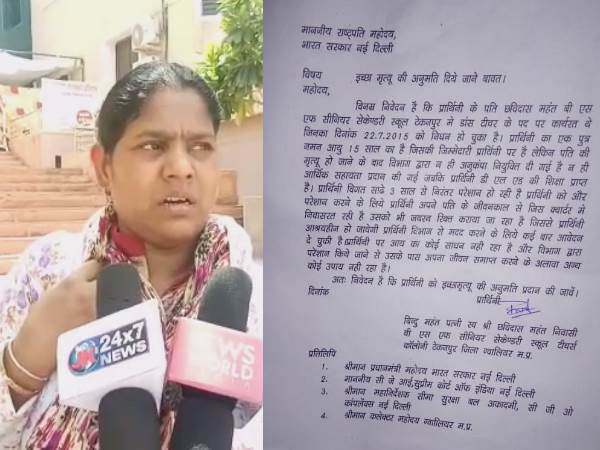 24x7
NEWS
WORLD
माननीय राष्ट्रपति महोदय,
भारत सरकार नई दिल्ली
विषय इच्छा मृत्यू की अनुमति दिये जाने बावत।
महोदय,
विनम्र निवेदन है कि प्रार्थिनी के पति छविदास महंत बी एस
एफ सीनियर सेकेण्डरी स्कूल टेकनपुर मे डांस टीचर के पद पर कार्यरत थे
जिनका दिनांक 22.7.2015 को निधन हो चुका है। प्रार्थिनी का एक पुत्र
नमन आयु 15 साल का है जिसकी जिम्मेदारी प्रार्थिनी पर है लेकिन पति की
मृत्यू हो जाने के बाद विभाग द्वारा न ही अनुकंपा नियुक्ति दी गई है न ही
आर्थिक सहायता प्रदान की गई जबकि प्रार्थिनी डी एल एड की शिक्षा प्राप्त
है। प्रार्थिनी विगत साढे 3 साल से निरंतर परेशान हो रही है प्रार्थिनी को और
परेशान करने के लिये प्रार्थिनी अपने पति के जीवनकाल से जिस क्वार्टर में
निवासरत रही है उसको भी जबरन रिक्त कराया जा रहा है जिससे प्रार्थिनी
आश्रयहीन हो जावेगी प्रार्थिनी विभाग से मदद करने के लिये कई बार आवेदन
दे चुकी है।प्रार्थिनी पर आय का कोई साधन नही रहा है और विभाग द्वारा
परेशान किये जाने से उसके पास अपना जीवन समाप्त करने के अलावा अन्य
कोई उपाय नही रहा है।
अतः निवेदन है कि प्रार्थिनी को इच्छामृत्यू की अनुमति प्रदान की जावें।
दिनांक प्रार्थिनी
बिन्दु महंत पत्नी स्व श्री छविदास महंत निवासी
बी एस एफ सीनियर सेकेण्डरी स्कूल टीचर्स
कॉलोनी टेकनपुर जिला ग्वालियर म.प्र.
प्रतिलिपि
1. श्रीमान प्रधानमंत्री महोदय भारत सरकार नई दिल्ली
2. माननीय सी जे आई,सुप्रीम कोर्ट ऑफ इंडिया नई दिल्ली
3. श्रीमान महानिर्देशक सीमा सुरक्षा बल अकादमी, सी जी ओ
कांपलैक्स नई दिल्ली
4. श्रीमान कलेक्टर महोदय ग्वालियर म.प्र.